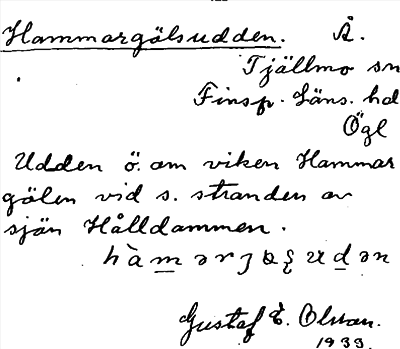 Hammargölsudden. Å.
Tjällmo sn
Finsp. Läns. hd
Ögl
Udden ö. om viken Hammar
gölen vid s. stranden av
sjön Hålldammen.
Gustaf E. Olsson.
1933.